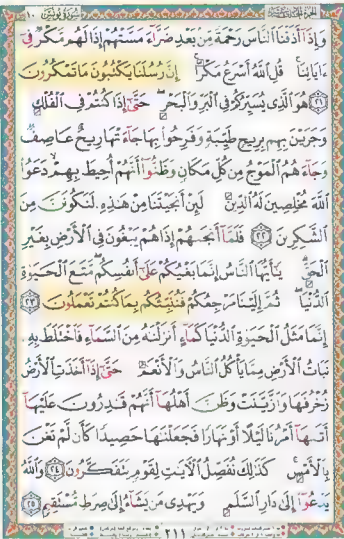 وَإِذَآ أَذَقْنَا ٱلنَّاسَ رَحْمَةً مِّنۢ بَعْدِ ضَرَّآءَ مَسَّتْهُمْ إِذَا لَهُم مَّكْرٌ فِىٓ
ءَايَاتِنَا قُلِ ٱللَّهُ أَسْرَعُ مَكْرًا إِنَّ رُسُلَنَا يَكْتُبُونَ مَا تَمْكُرُونَ
٢١ هُوَ ٱلَّذِى يُسَيِّرُكُمْ فِى ٱلْبَرِّ وَٱلْبَحْرِ حَتَّىٰٓ إِذَا كُنتُمْ فِى ٱلْفُلْكِ
وَجَرَيْنَ بِهِم بِرِيحٍ طَيِّبَةٍ وَفَرِحُوا۟ بِهَا جَآءَتْهَا رِيحٌ عَاصِفٌ
وَجَآءَهُمُ ٱلْمَوْجُ مِن كُلِّ مَكَانٍ وَظَنُّوٓا۟ أَنَّهُمْ أُحِيطَ بِهِمْ دَعَوُا۟
ٱللَّهَ مُخْلِصِينَ لَهُ ٱلدِّينَ لَئِنْ أَنجَيْتَنَا مِنْ هَٰذِهِۦ لَنَكُونَنَّ مِنَ
ٱلشَّٰكِرِينَ ٢٢ فَلَمَّآ أَنجَىٰهُمْ إِذَا هُمْ يَبْغُونَ فِى ٱلْأَرْضِ بِغَيْرِ
ٱلْحَقِّ يَٰٓأَيُّهَا ٱلنَّاسُ إِنَّمَا بَغْيُكُمْ عَلَىٰٓ أَنفُسِكُم مَّتَٰعَ ٱلْحَيَوٰةِ
ٱلدُّنْيَا ثُمَّ إِلَيْنَا مَرْجِعُكُمْ فَنُنَبِّئُكُم بِمَا كُنتُمْ تَعْمَلُونَ ٢٣
إِنَّمَا مَثَلُ ٱلْحَيَوٰةِ ٱلدُّنْيَا كَمَآءٍ أَنزَلْنَٰهُ مِنَ ٱلسَّمَآءِ فَٱخْتَلَطَ بِهِۦ
نَبَاتُ ٱلْأَرْضِ مِمَّا يَأْكُلُ ٱلنَّاسُ وَٱلْأَنْعَٰمُ حَتَّىٰٓ إِذَآ أَخَذَتِ ٱلْأَرْضُ
زُخْرُفَهَا وَٱزَّيَّنَتْ وَظَنَّ أَهْلُهَآ أَنَّهُمْ قَٰدِرُونَ عَلَيْهَآ
أَتَىٰهَآ أَمْرُنَا لَيْلًا أَوْ نَهَارًا فَجَعَلْنَٰهَا حَصِيدًا كَأَن لَّمْ تَغْنَ
بِٱلْأَمْسِ كَذَٰلِكَ نُفَصِّلُ ٱلْءَايَٰتِ لِقَوْمٍ يَتَفَكَّرُونَ ٢٤ وَٱللَّهُ
يَدْعُوٓا۟ إِلَىٰ دَارِ ٱلسَّلَٰمِ وَيَهْدِى مَن يَشَآءُ إِلَىٰ صِرَٰطٍ مُّسْتَقِيمٍ ٢٥
٢١١